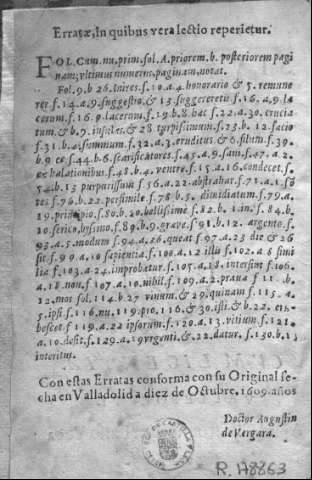 Erratæ, In quibus vera lectio reperietur.
FOL. Cum. nu. prim. fol. A. priorem. b. posteriorem pagi
nam; vltimus numerus, paginam, notat.
Fol. 9. b 26. lnires. f. 10. a 4. honorario & 5. remune
ret f. 14. a. 9. suggesto. & 13. suggereretis f. 16. a. 9. la
cerum. f. 16. 9 lacerom. f. 19. b. 8 hac f. 22. a 30. crucia
tum. & b. 7. insules. & 28 turpissimum. f. 23. b. 12. sacio
f. 31. b. 4. summum. f. 32. a. 3. eruditus & 6. filum. f. 39.
b. 9 ex f. 44. b. 6. scarificatores. f. 45. a. 9. sam. f. 47. a. 2.
ex balationibus. f. 48. b. 4. ventre. f. 15. a 16. condecet. f.
54. b. 13 purpurissum f 56. a. 22. abstrahar. f. 71. a. 1
res. f. 76. b. 22. persimile f. 78 b. 5. dimidiatum. f. 79. a.
19. principio. f. 80. b. 20. bellissime f. 82. b. 1. in. f. 84. b.
10. serico, byssino. f. 89. b. 9. graue. f. 91. b. 12. argento. f.
93. a. 5. modum f. 94. a. 26. queat f. 97. a 23. die & 26
sit f. 99. a. 10 sapientia. f. 100. a. 12 illis f. 102. a 8 simi
lia f. 103. a 24. improbatur. f. 105. a. 18. intersint f. 106.
a. 18. non. f. 107. a. 10. nihil. f. 109. a. 2. praua f 11 . b.
12. moi fol. 114. b. 27 vinum. & 29. quinam f. 115. a.
5. ipsi. f. 116. nu. 119. pro, 116. & 30. isti. & b. 22.
hoscet f. 119. a. 22 ipsorum. f. 120. a. 13. vitium. f. 121.
a. 10. desit. f. 129. a. 19 vrgenti. & 22. datur. f. 130. b. 13
interitus.
Con estas Erratas conforma con su Original fe-
cha en Valladolid a diez de Octubre. 1609. años
Doctor Augustin
de Vergara.
R. 148863